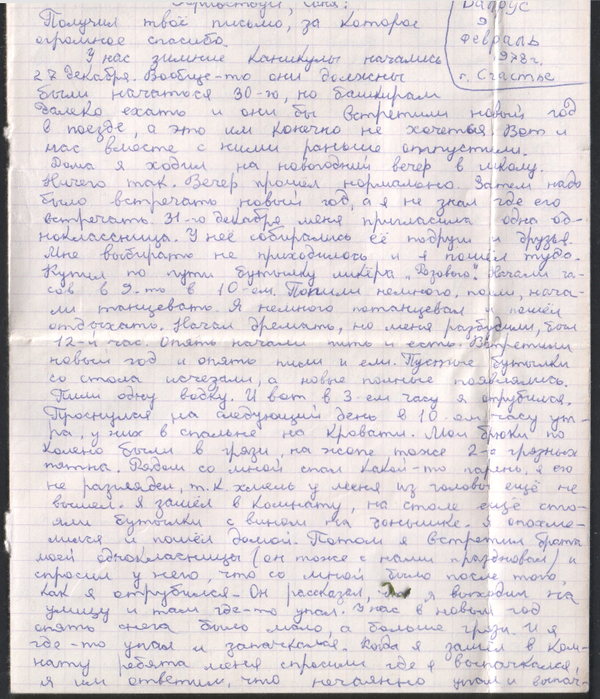 Здравствуй, Иня!
Папрус
9
февраль
1978г.
г. Счастье
Получил твоё письмо, за которое
огромное спасибо.
У нас зимние каникулы начались
27 декабря. Вообще-то они должны
были начаться 30-го, но башкирам
далеко ехать и они бы встретили новый год
в поезде, а это им конечно не хочется. Вот и
нас вместе с ними раньше отпустили.
Дома я ходил на новогодний вечер в школу.
Ничего так. Вечер прошёл нормально. Затем надо
было встречать новый год, а я не знал где его
встречать. 31-го декабря меня пригласила одна од-
ноклассница. У неё собирались её подруги и друзья.
Мне выбирать не приходилось, и я пошёл туда.
Купил по пути бутылку ликёра „Розовый". Начали ча-
сов в 9-ть в 10-ем. Попили немного, поели, нача-
ли танцевать. Я немного потанцевал и пошёл
отдыхать. Начал дремать, но меня разбудили, был
12-й час. Опять начали пить и есть. Встретили
новый год и опять пили и ели. Пустые бутылки
со стола исчезали, а новые полные появлялись.
Пили одну водку. И вот в 3-ем часу я отрубился.
Проснулся на следующий день в 10-ом часу ут-
ра, у них в спальне на кровати. Мои брюки по
колено были в грязи, на жопе тоже 2-а грязных
пятна. Рядом со мной спал какой-то парень, я его
не разглядел, т.к. хмель у меня из головы ещё не
вышел. Я зашёл в комнату, на столе ещё сто-
яли бутылки с вином на донышке. Я опохме-
лился и пошёл домой. Потом я встретил брата
моей одноклассницы (он тоже с нами праздновал) и
спросил у него, что со мной было после того,
как я отрубился. Он рассказал, что я выходил на
улицу и там где-то упал. У нас в новый год
опять снега было мало, а больше грязи. И я
где-то упал и запачкался. Когда я зашёл в ком-
нату ребята меня спросили где я выпачкался,
я им ответил, что нечаянно упал и выпач-